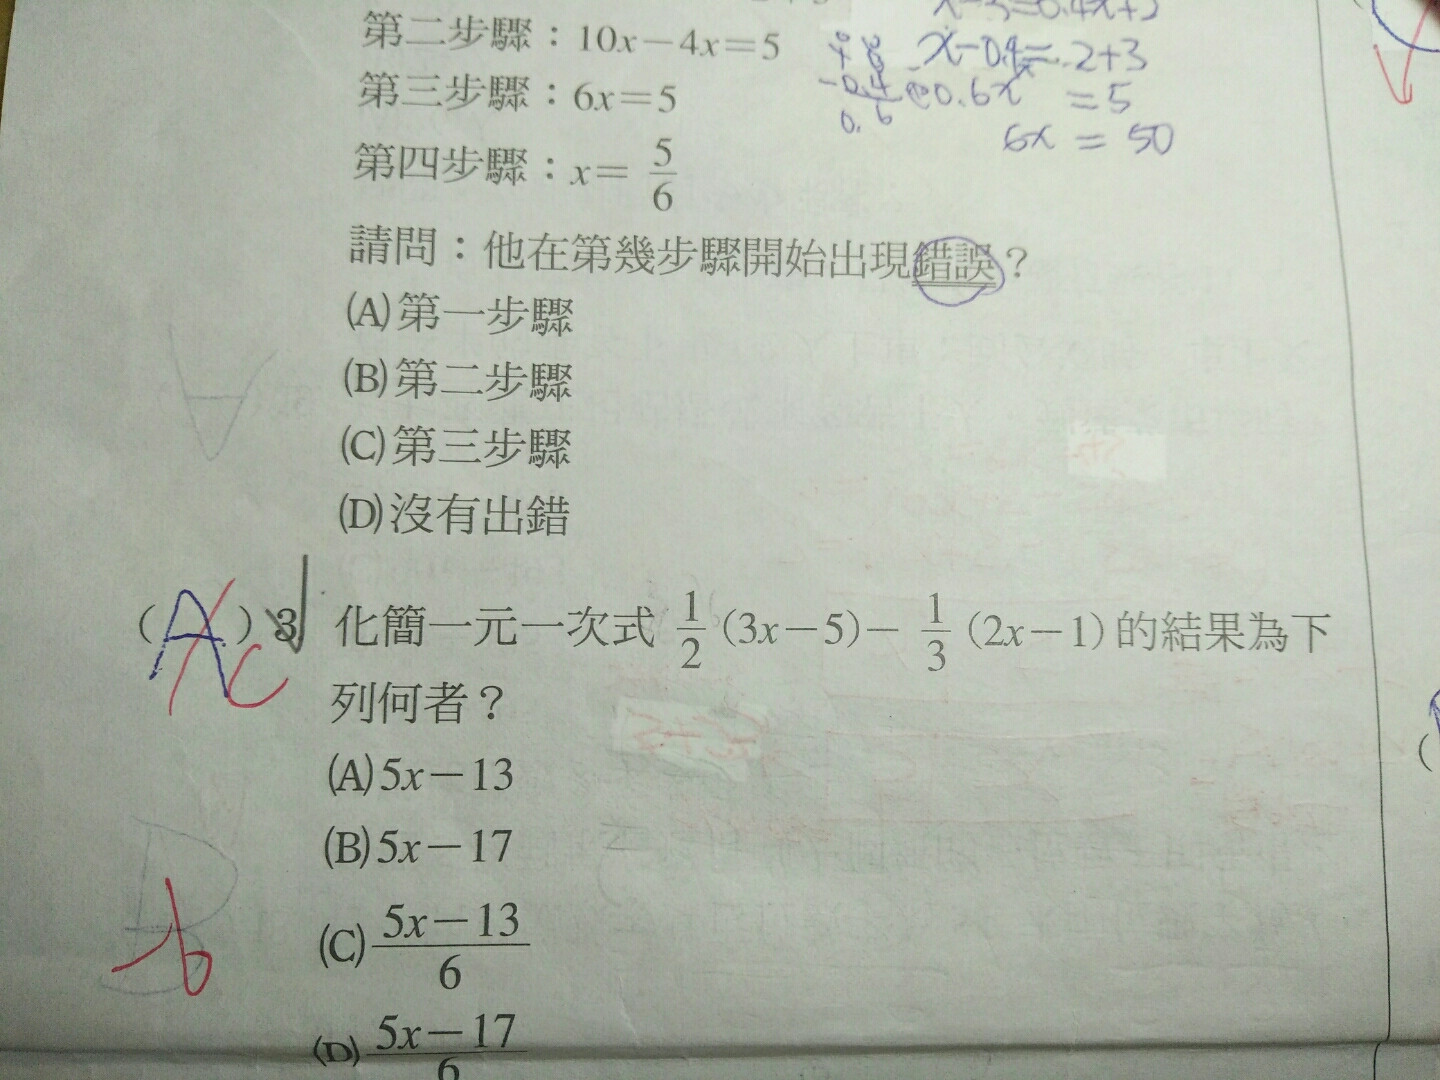 第二步驟：10x－4x＝5
第三步驟：6x＝5
第四步驟：x＝ 5/6
請問：他在第幾步驟開始出現錯誤？
(A)第一步驟
(B)第二步驟
(C)第三步驟
(D)沒有出錯
x-0.4= 2+3
0.6x = 5
6x = 50
(A)3 化簡一元一次式 1/2 (3x－5)－ 1/3 (2x－1)的結果為下
C
列何者？
(A)5x－13
(B)5x－17
(C) 5x－13/6
(D) 5x－17/6
B